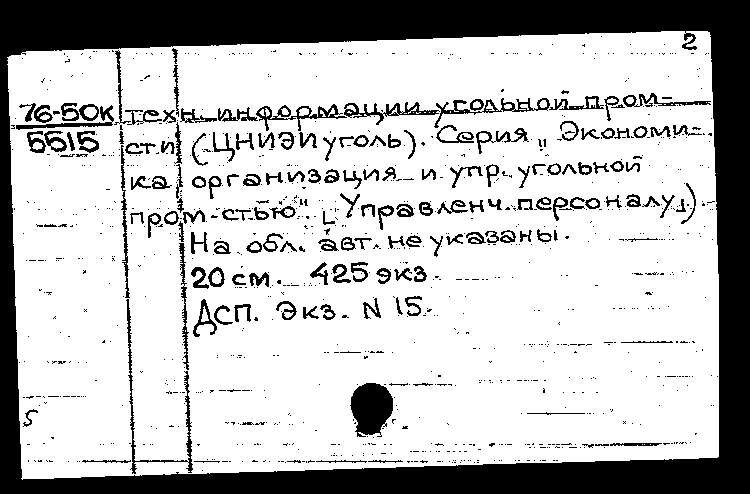 2
76-50К техн. информации угольной пром-
5515 сти (ЦНИЭИуголь). Серия „Экономи-
ка организация и упр. угольной
пром-стью". [Управленч. персоналу]).
На обл. авт. не указаны.
20 см. 425 экз.
ДСП. Экз. N 15.
5